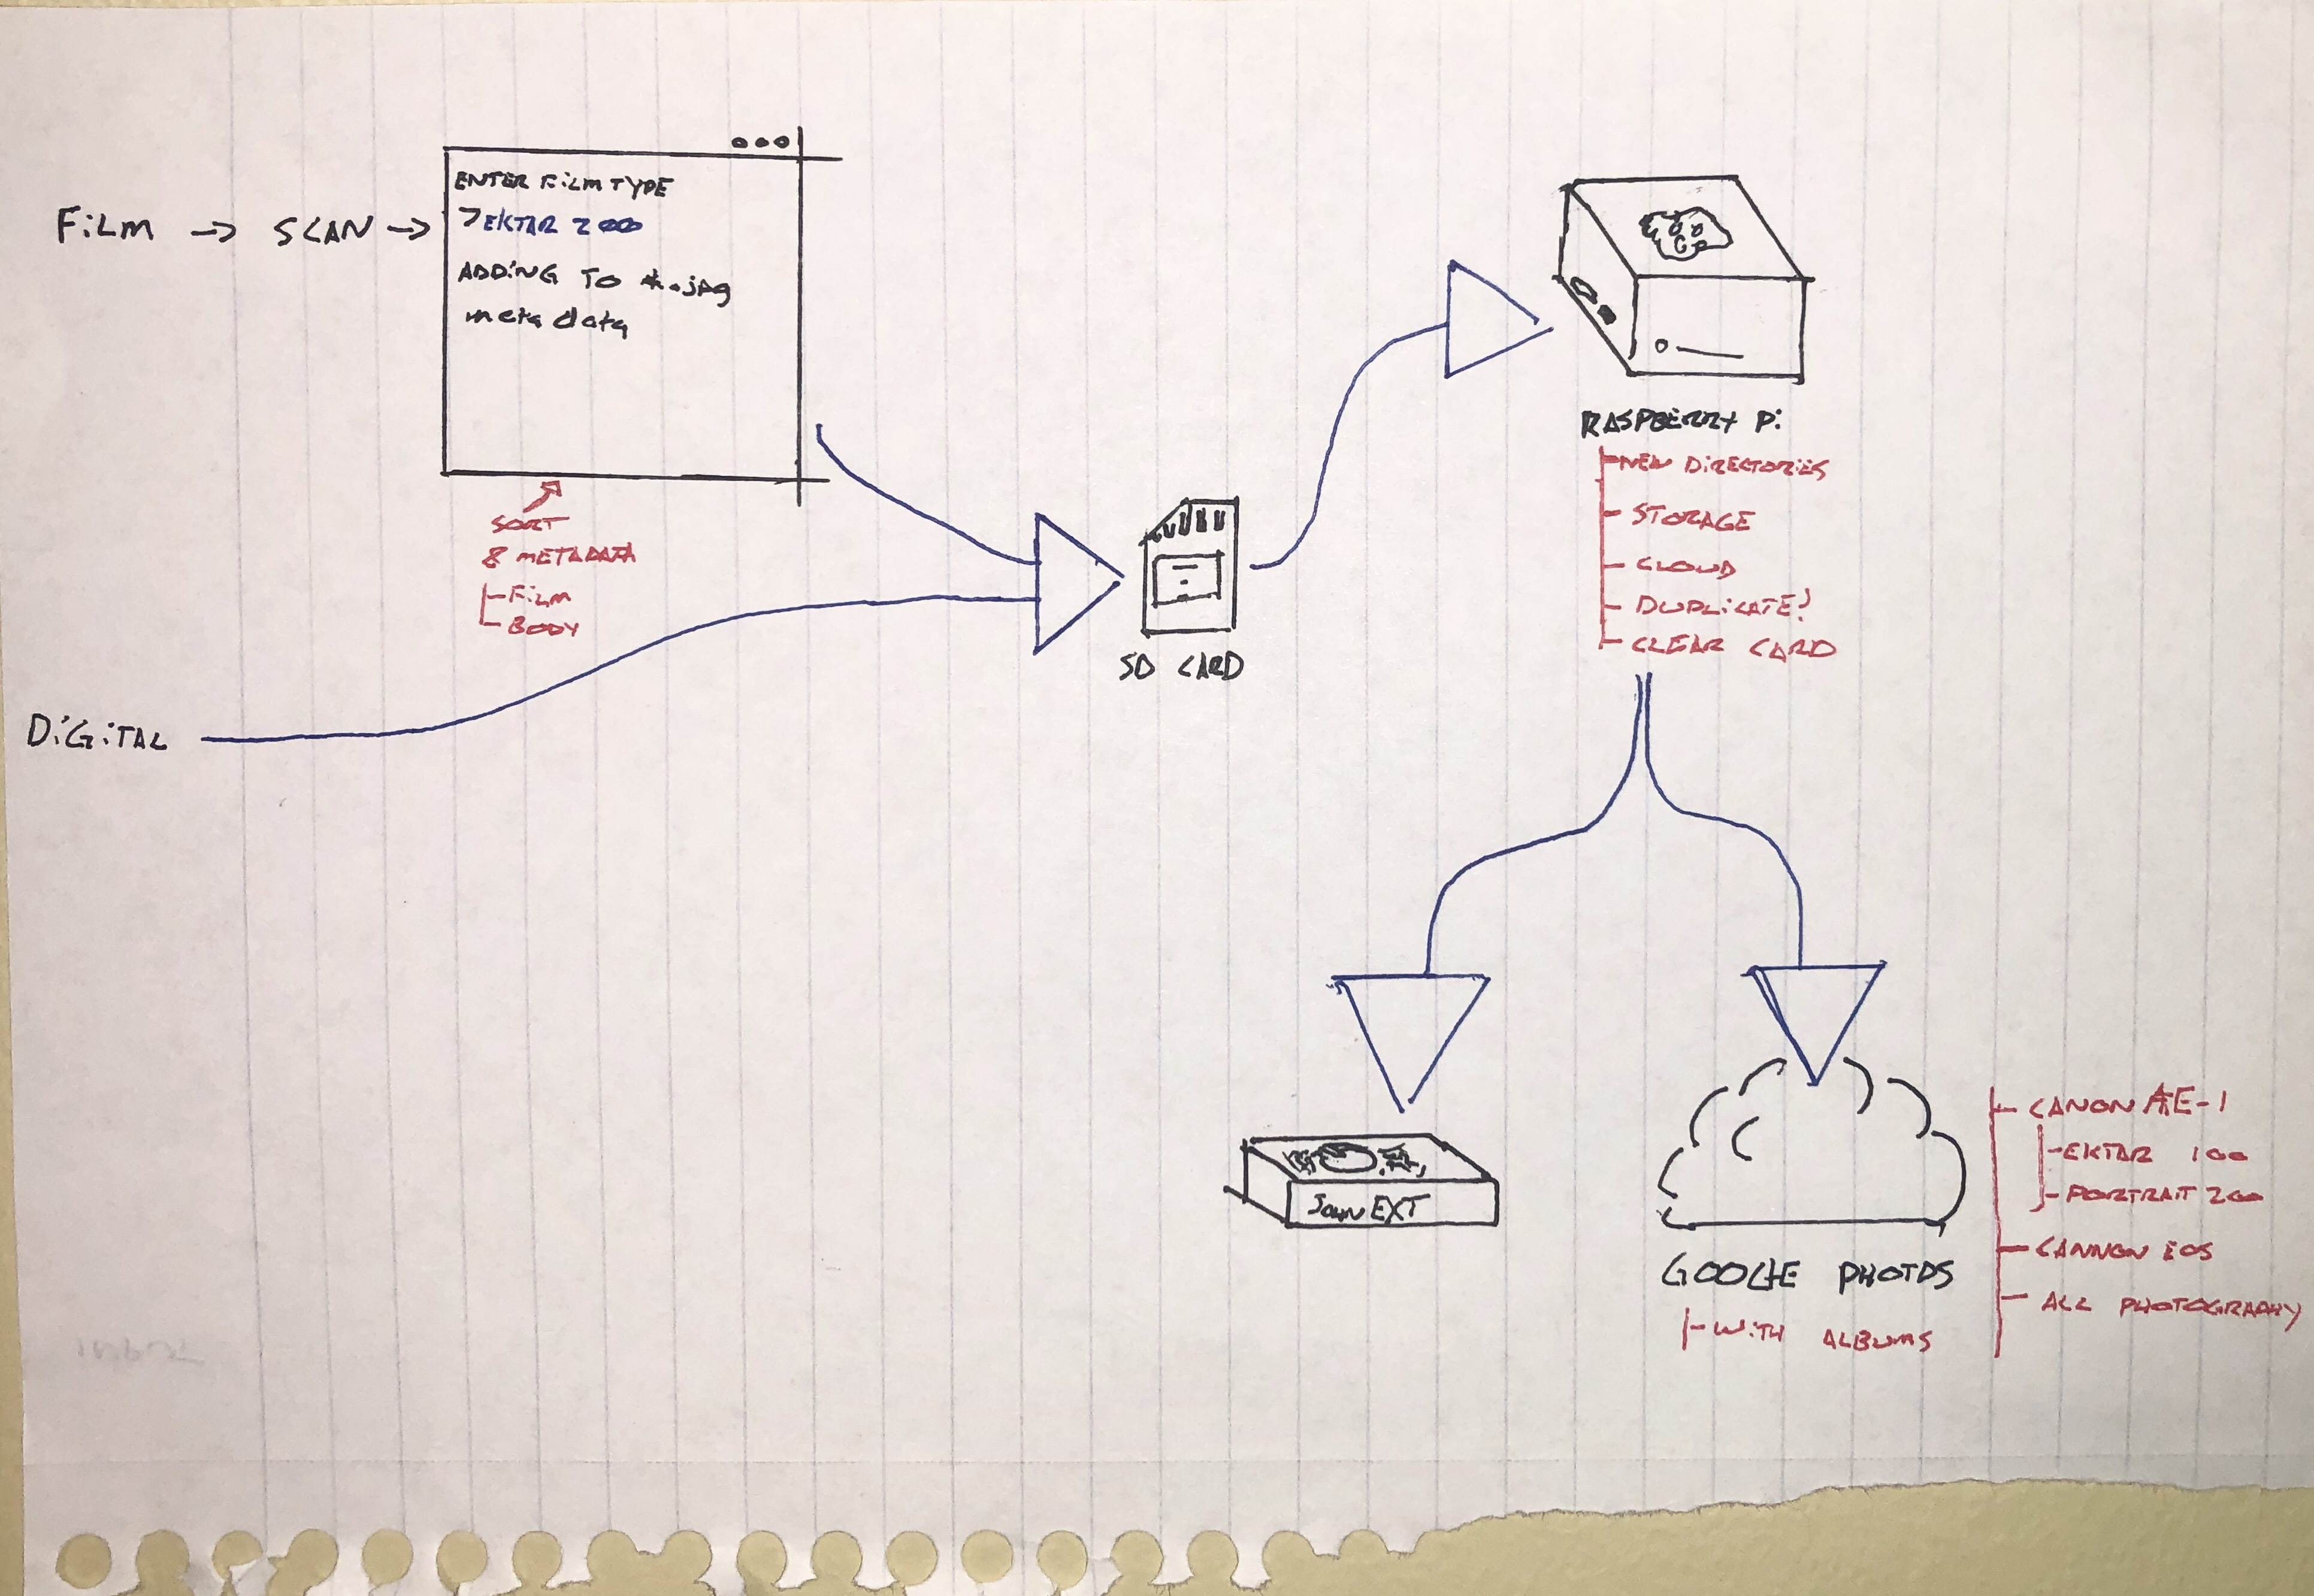 FILM → SCAN →
ENTER FILM TYPE
> EKTAR 200
ADDING TO *.jpg
meta data
SORT
& METADATA
FILM
BODY
DIGITAL
SD CARD
RASPBERRY Pi
NEW DIRECTORIES
STORAGE
CLOUD
DUPLICATE?
CLEAR CARD
JOHN EXT
GOOGLE PHOTOS
WITH ALBUMS
CANON AE-1
EKTAR 100
PORTRAIT 200
CANNON EOS
ALL PHOTOGRAPHY